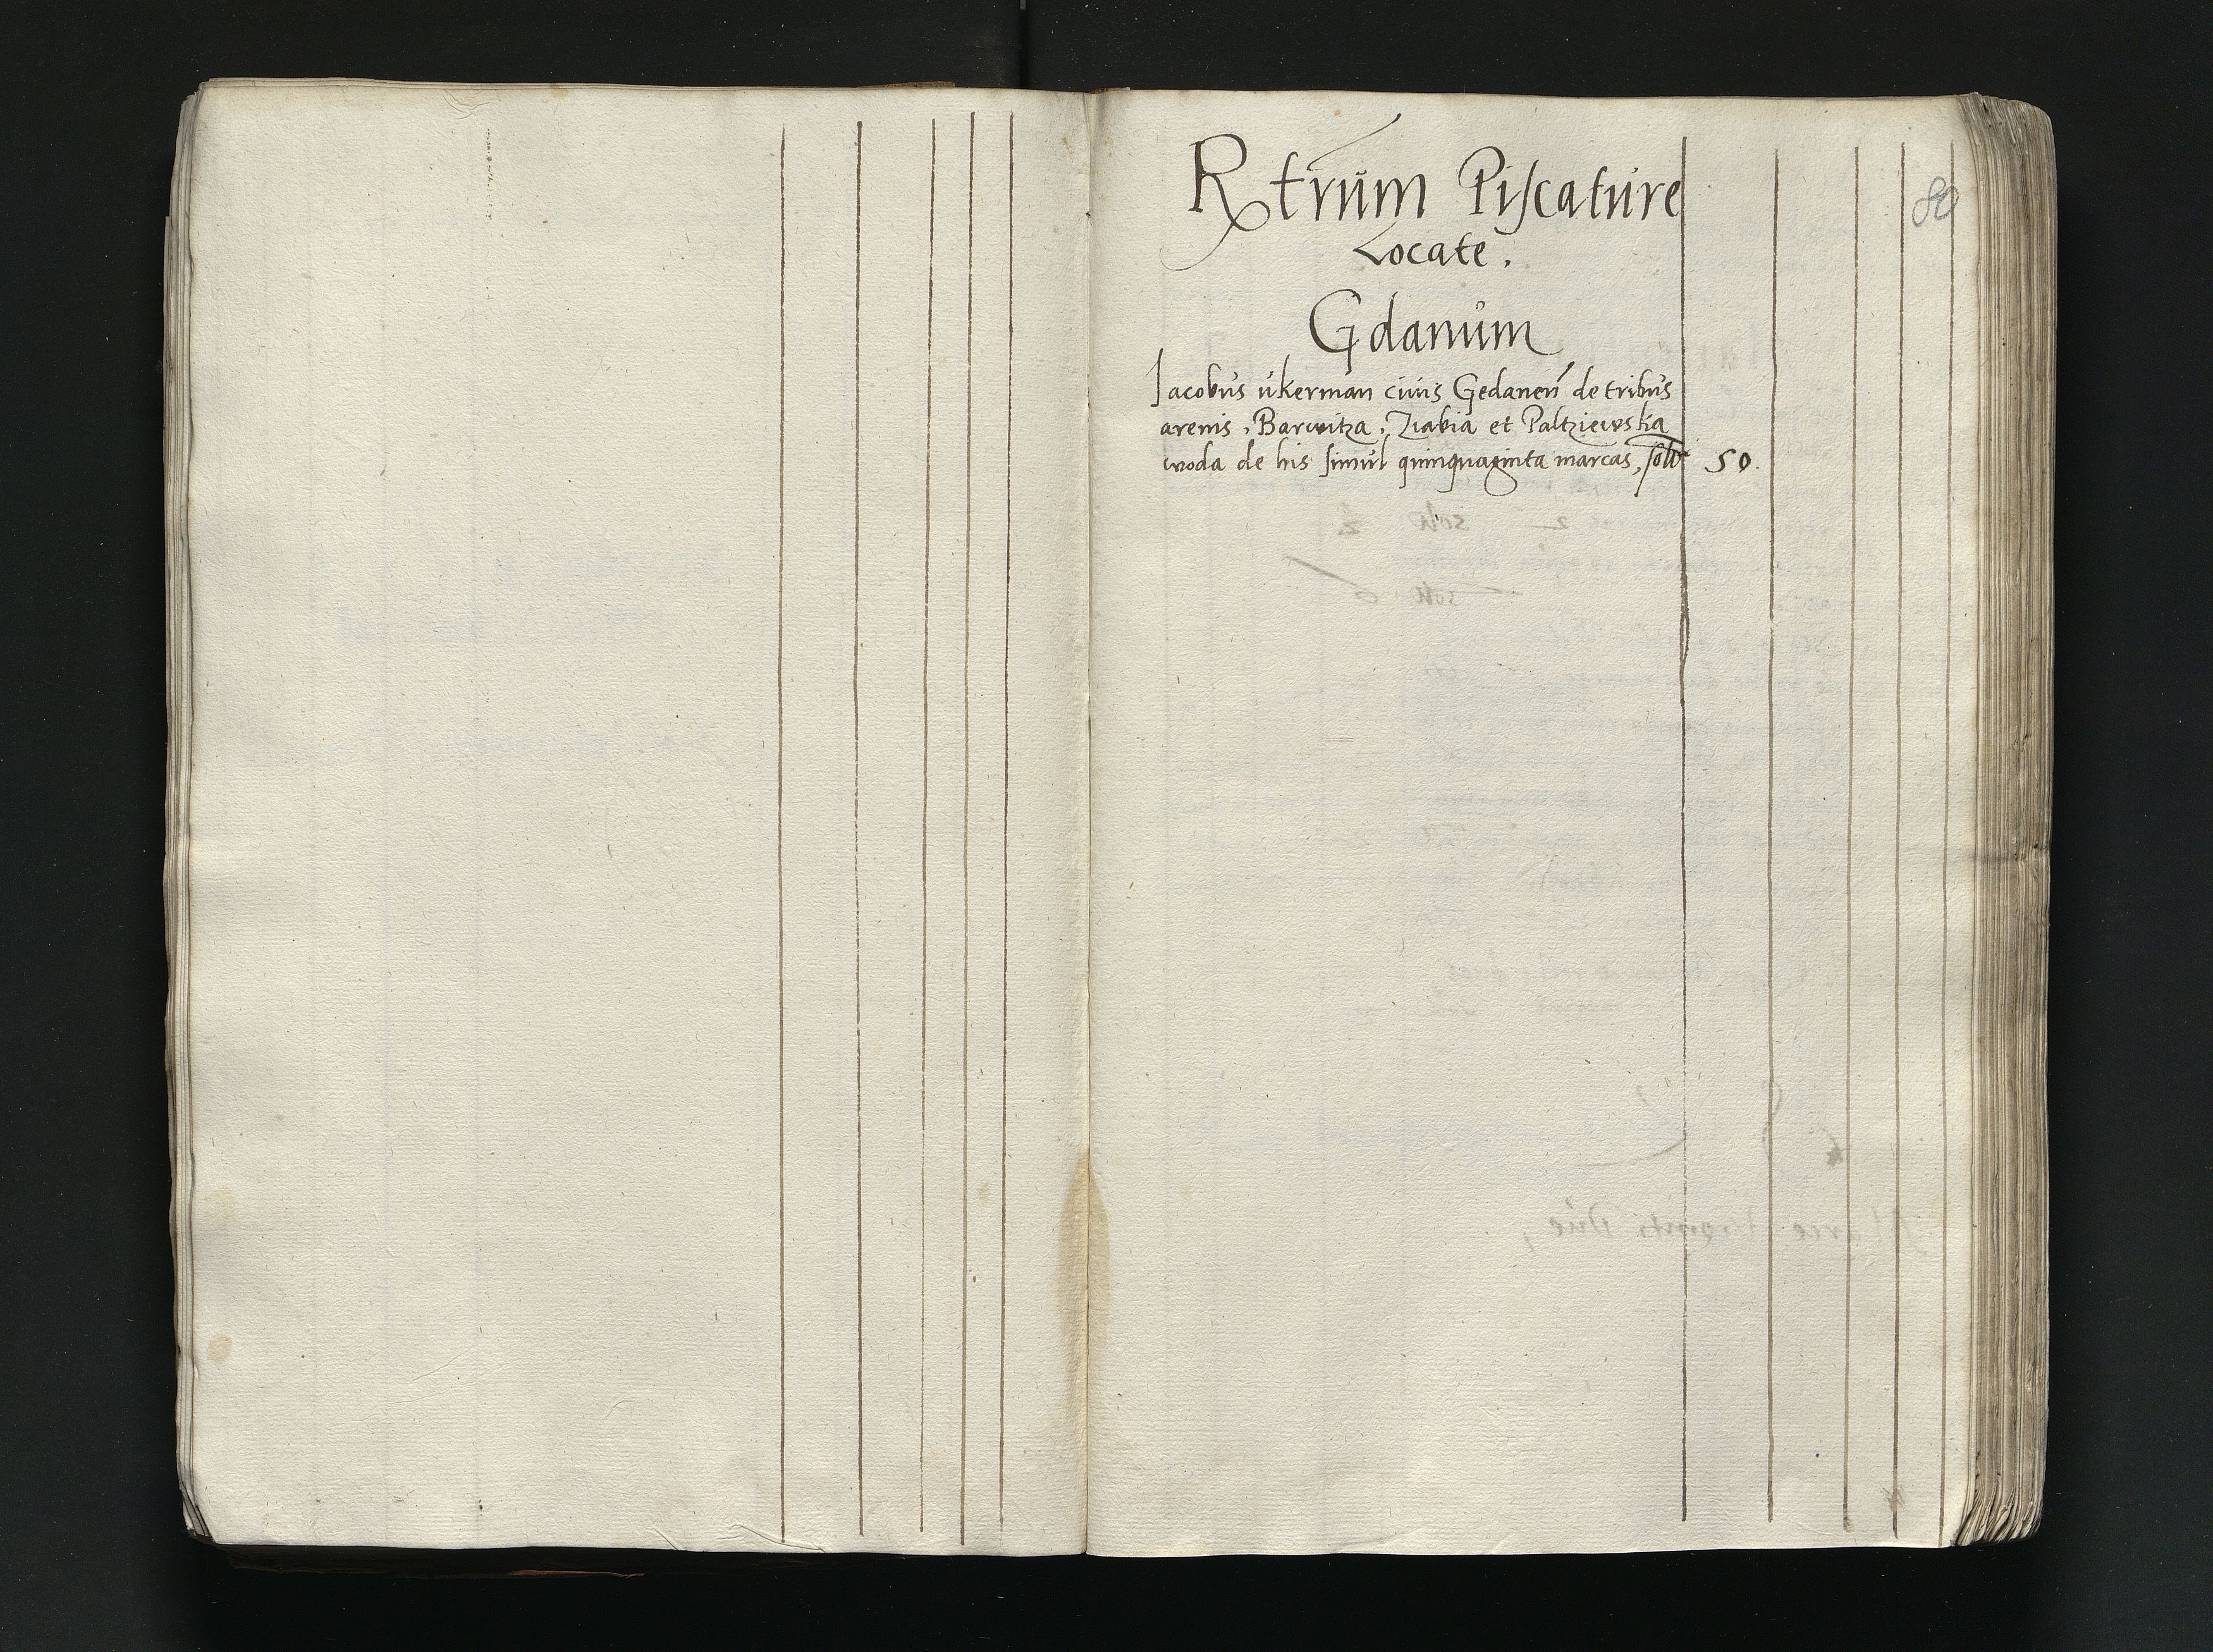 Rtrum Piscature
80
Locate.
Gdanum
Jacobus ukerman civis Gedanen̄ de tribus
arenis, Barwitza, Ziabia et Paltziewskia
woda de his simul quinquaginta marcas, solt 50.